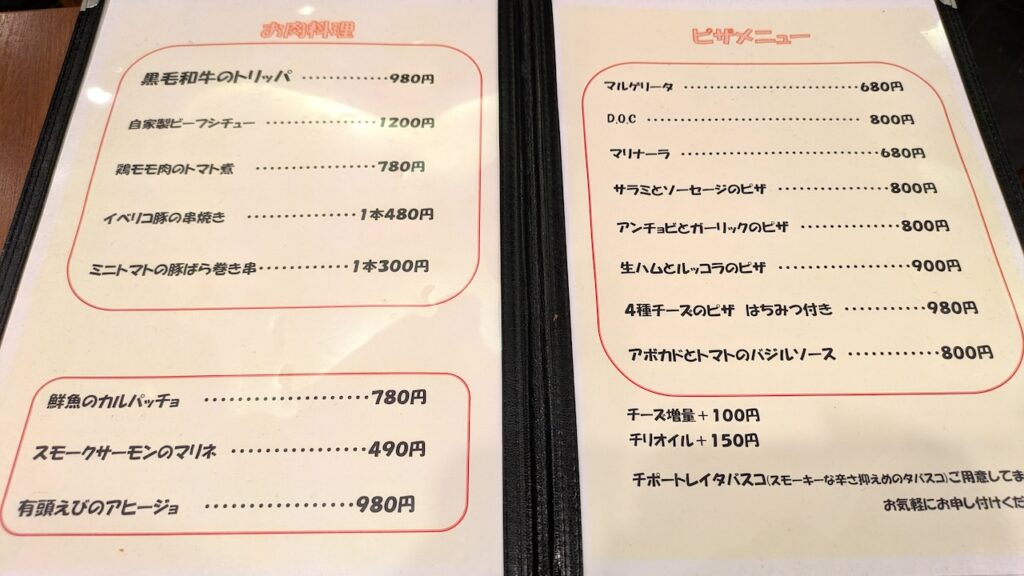 お肉料理
黒毛和牛のトリッパ ‥‥‥‥‥‥980円
自家製ビーフシチュー ‥‥‥‥‥‥1200円
鶏モモ肉のトマト煮 ‥‥‥‥‥‥780円
イベリコ豚の串焼き ‥‥‥‥‥‥1本480円
ミニトマトの豚ばら巻き串‥‥‥‥‥1本300円
鮮魚のカルパッチョ ‥‥‥‥‥‥‥780円
スモークサーモンのマリネ ‥‥‥‥‥490円
有頭えびのアヒージョ ‥‥‥‥‥‥980円
ピザメニュー
マルゲリータ ‥‥‥‥‥‥‥‥680円
D.O.C ‥‥‥‥‥‥‥‥‥‥800円
マリナーラ ‥‥‥‥‥‥‥‥‥680円
サラミとソーセージのピザ ‥‥‥‥‥800円
アンチョビとガーリックのピザ ‥‥‥‥800円
生ハムとルッコラのピザ ‥‥‥‥‥‥900円
4種チーズのピザ はちみつ付き ‥‥‥‥980円
アボカドとトマトのバジルソース ‥‥‥‥800円
チーズ増量+100円
チリオイル+150円
チポートレイタバスコ(スモーキーな辛さ抑えめのタバスコ)ご用意してま
お気軽にお申し付けくだ